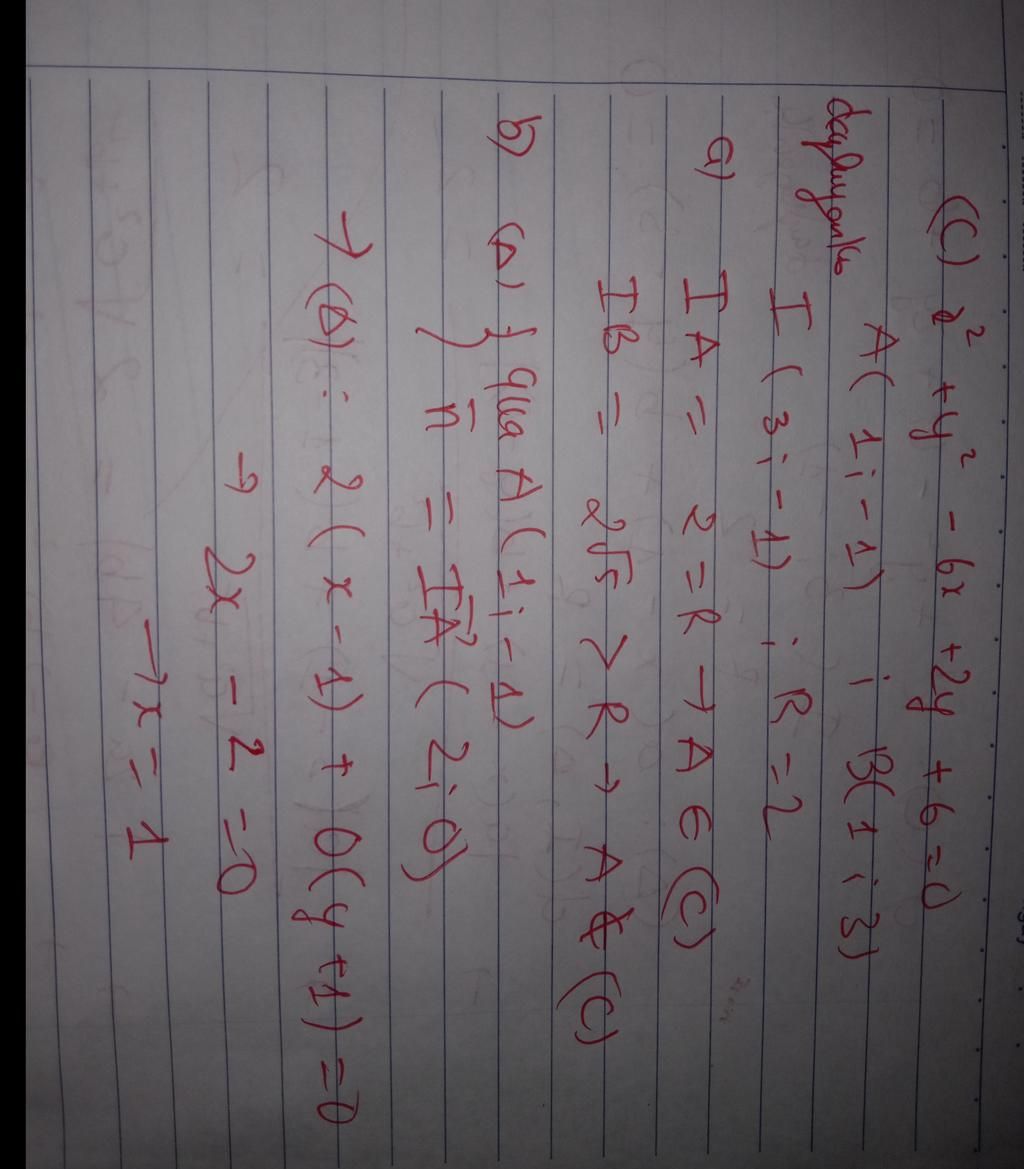 (C) x² + y² - 6x + 2y + 6 = 0
A( 1; -1) ; B( 1 ; 3)
I ( 3; -1) ; R = 2
a) IA = 2 = R → A ∈ (C)
IB = 2√5 > R → A ∉ (C)
b) (Δ) { qua A( 1; -1)
n = IA ( 2; 0)
→ (Δ) : 2( x - 1) + 0( y + 1) = 0
→ 2x - 2 = 0
→ x = 1